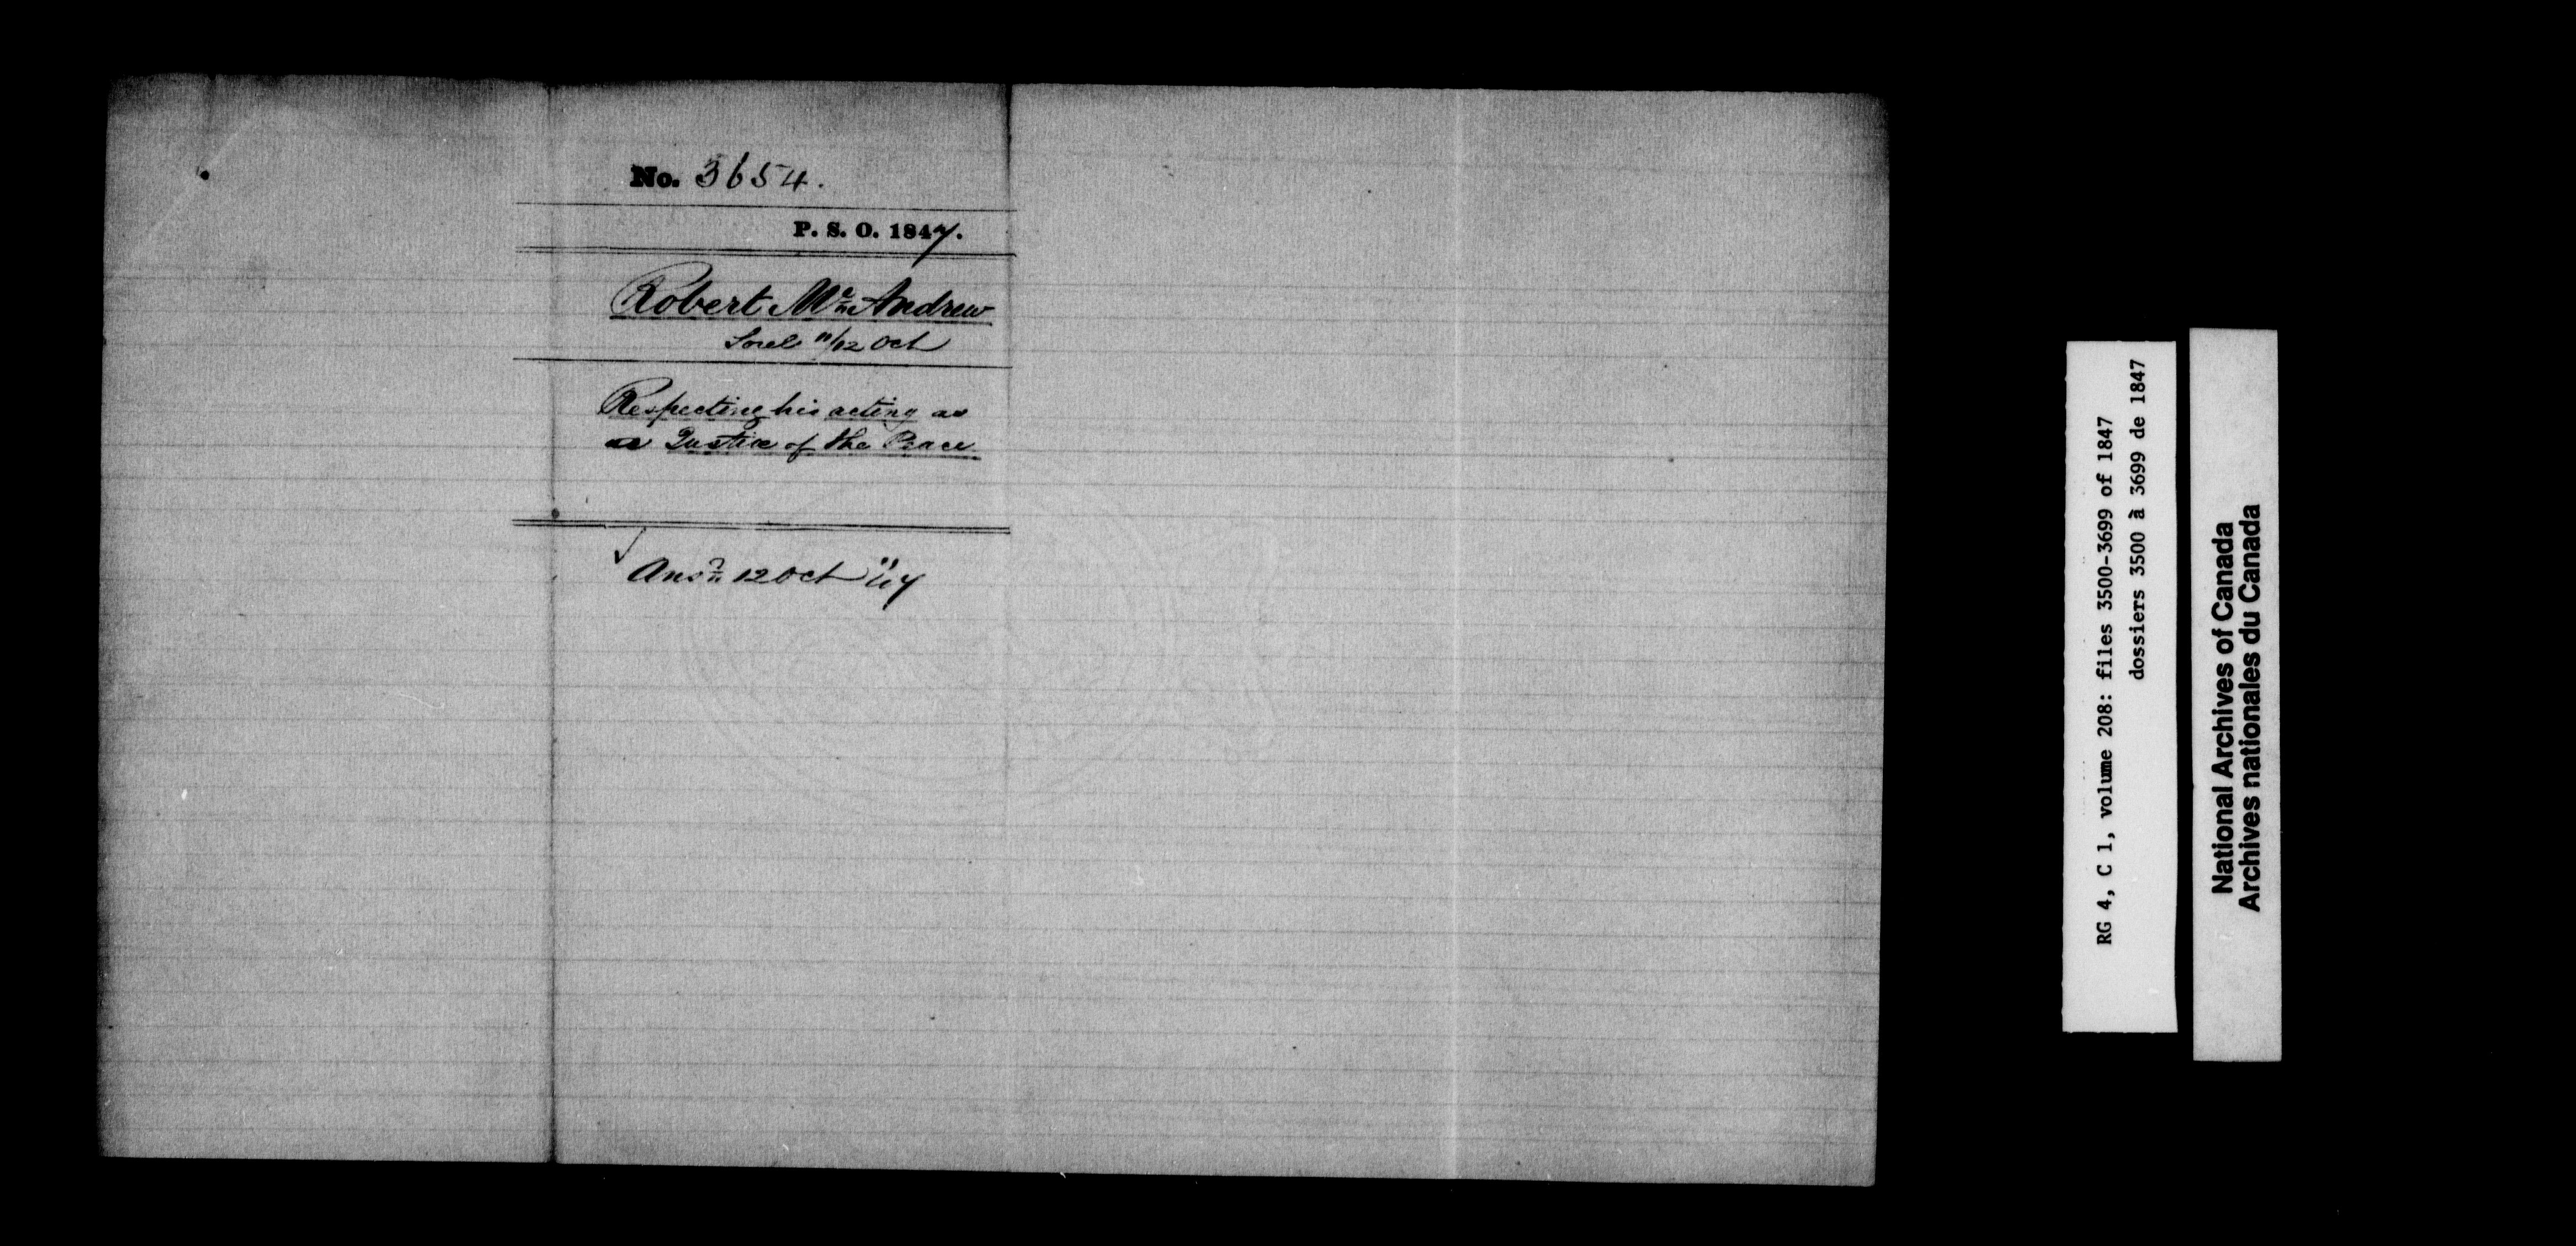 No. 3654.
P. S. O. 1847.
Robert McAndrew
Sorel 11/12 Oct
Respecting his acting as
a Justice of the Peace
Ansd 12 Oct "47
RG 4, C 1, volume 208: files 3500-3699 of 1847
dossiers 3500 à 3699 de 1847
National Archives of Canada
Archives nationales du Canada